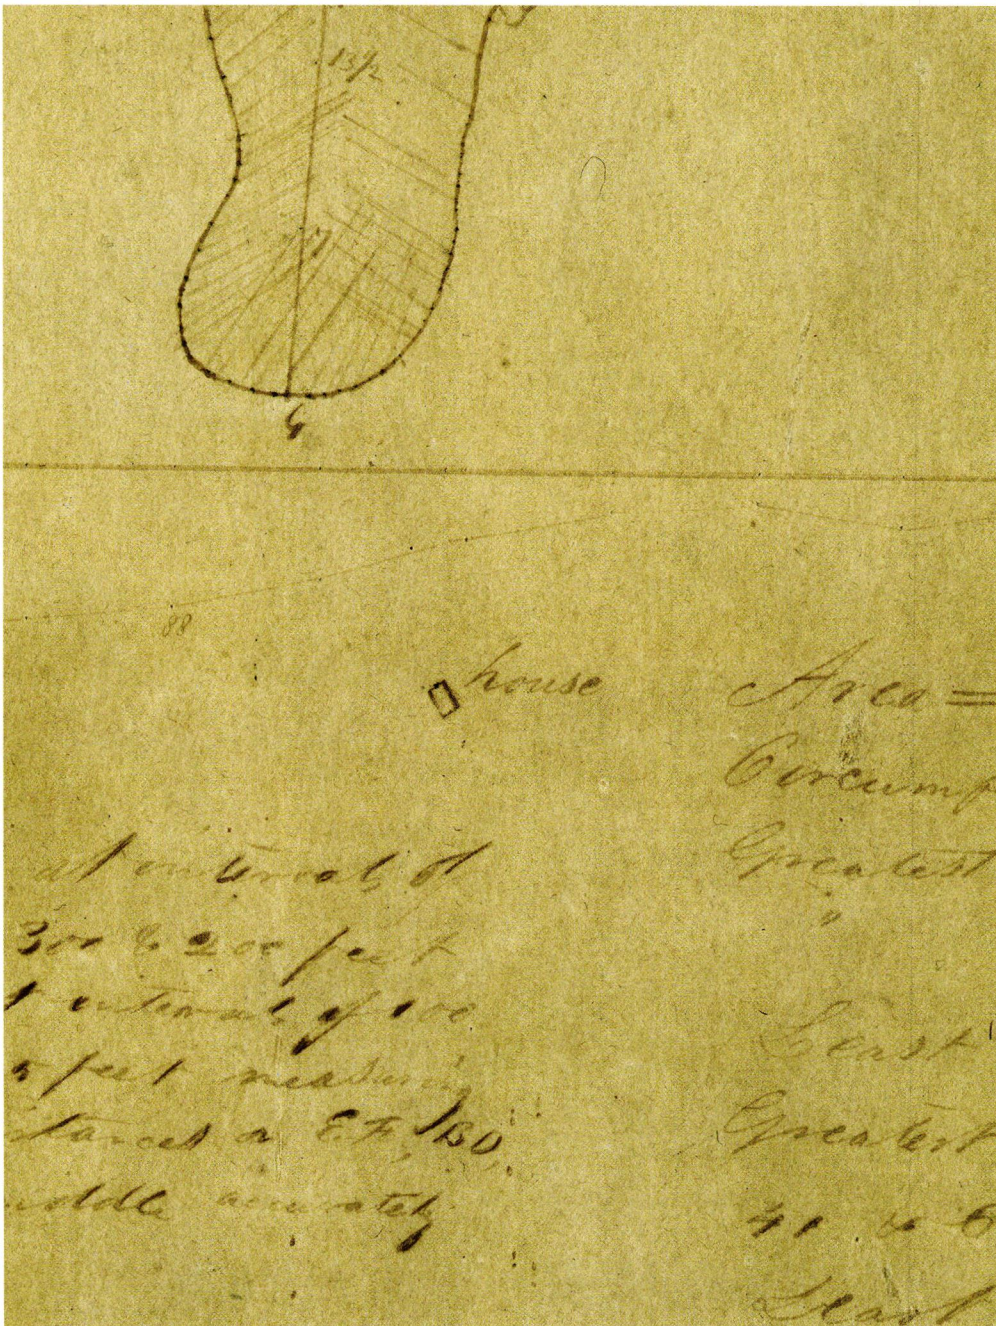 13½
7
G
88
house
Area =
Circumf
Greatest
"
Least
Greatest
41 to
Least
at intervals of
300 & 200 feet
intervals of 100
feet measuring
stances on EF, BD,
iddle accurately